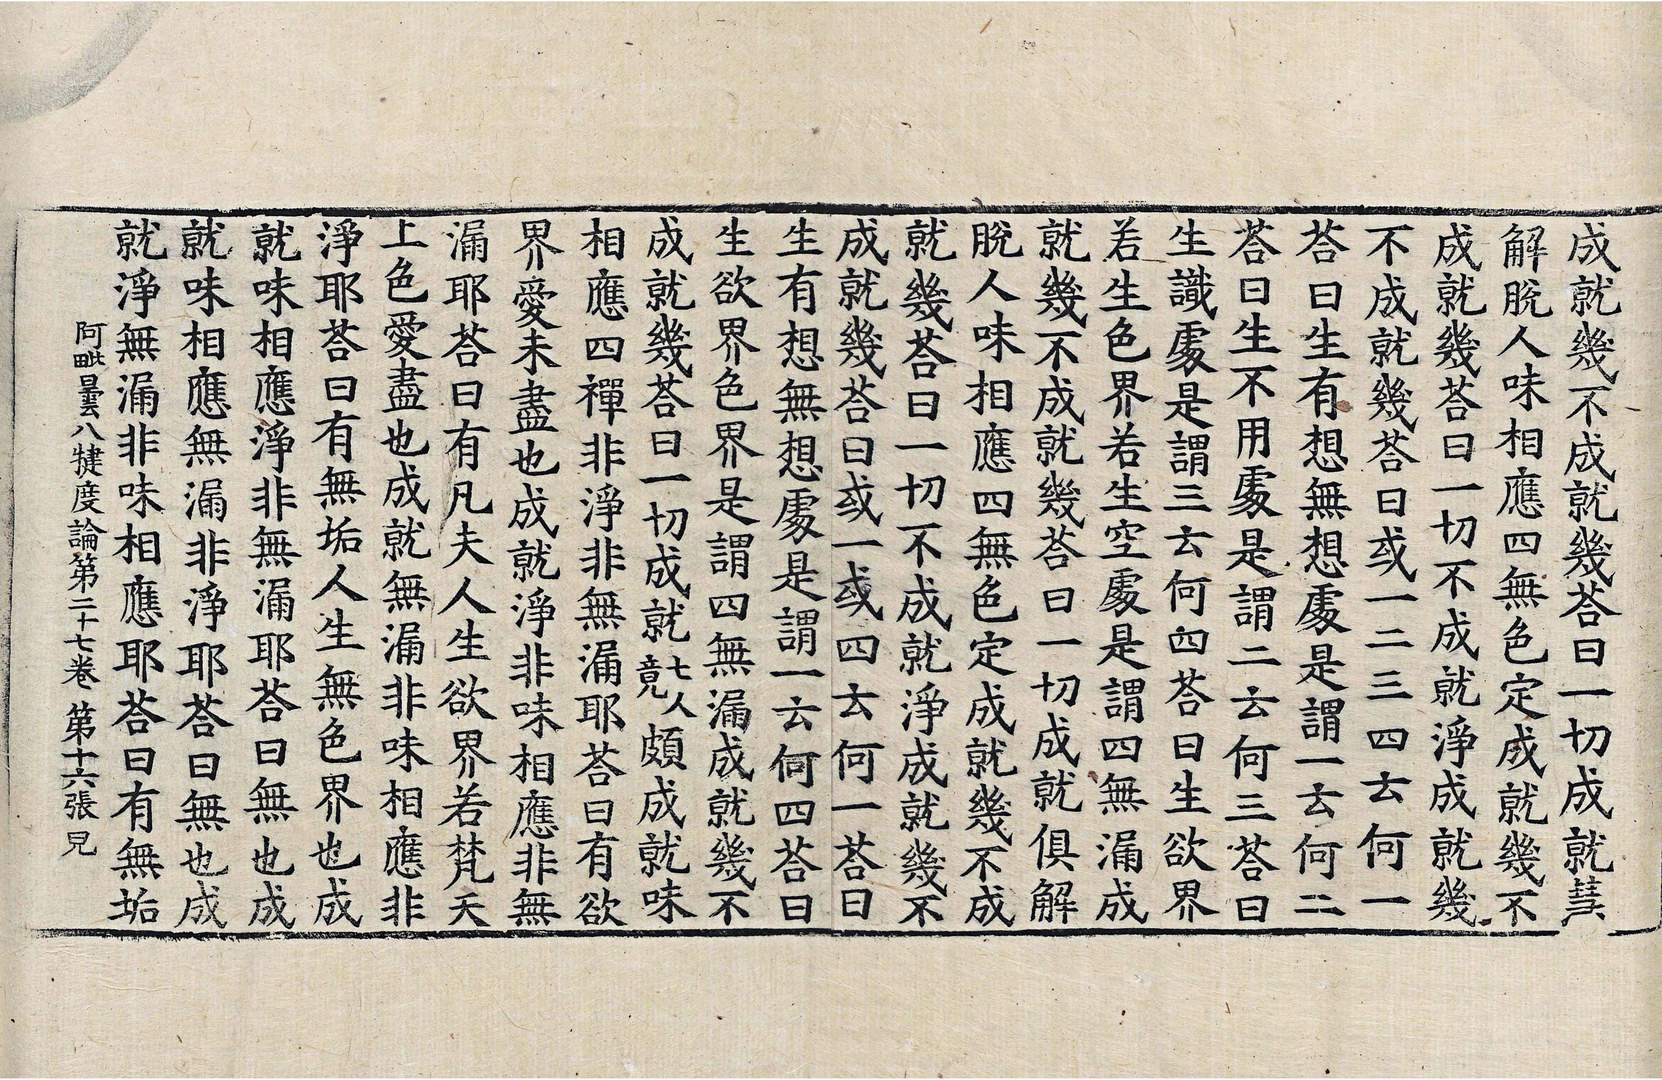 成就幾不成就幾荅曰一切成就慧
解脫人味相應四無色定成就幾不
成就幾荅曰一切不成就淨成就幾
不成就幾荅曰或一二三四云何一
荅曰生有想無想處是謂一云何二
荅曰生不用處是謂二云何三荅曰
生識處是謂三云何四荅曰生欲界
若生色界若生空處是謂四無漏成
就幾不成就幾荅曰一切成就俱解
脫人味相應四無色定成就幾不成
就幾荅曰一切不成就淨成就幾不
成就幾荅曰或一或四云何一荅曰
生有想無想處是謂一云何四荅曰
生欲界色界是謂四無漏成就幾不
成就幾荅曰一切成就七人竟頗成就味
相應四禪非淨非無漏耶荅曰有欲
界愛未盡也成就淨非味相應非無
漏耶荅曰有凡夫人生欲界若梵天
上色愛盡也成就無漏非味相應非
淨耶荅曰有無垢人生無色界也成
就味相應淨非無漏耶荅曰無也成
就味相應無漏非淨耶荅曰無也成
就淨無漏非味相應耶荅曰有無垢
阿毗曇八犍度論第二十七卷 第十六張 皃